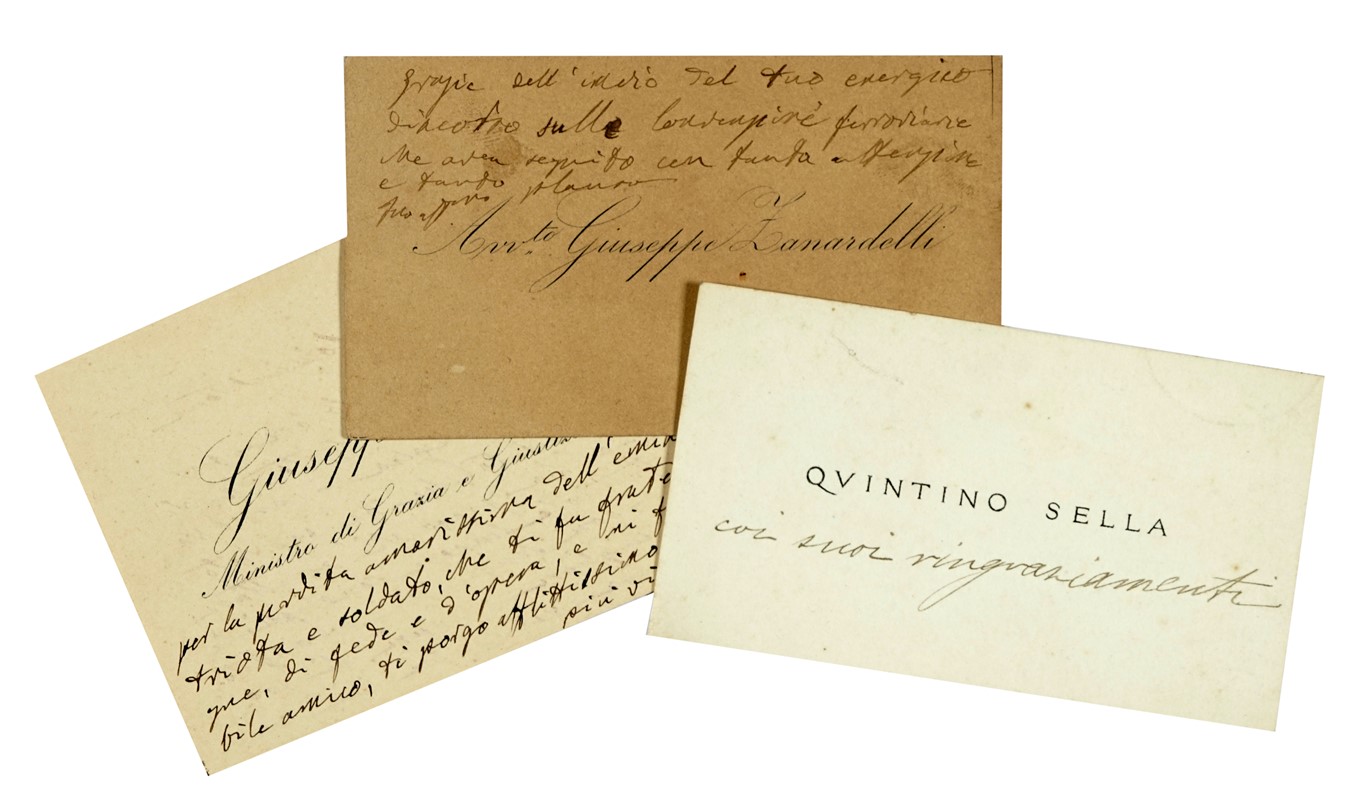 Grazie dell'invio del tuo energico
discorso sulle Convenzioni ferroviarie
che avea seguito con tanta attenzione
e tanto plauso
tuo affmo
Avv.to Giuseppe Zanardelli
Giusepp
Ministro di Grazia e Giustiz
per la perdita amarissima dell'
triota e soldato, che ti fu frate
gue, di fede e d'opera, e mi f
bile amico, ti porgo afflittissimo
più vi
QVINTINO SELLA
coi suoi ringraziamenti